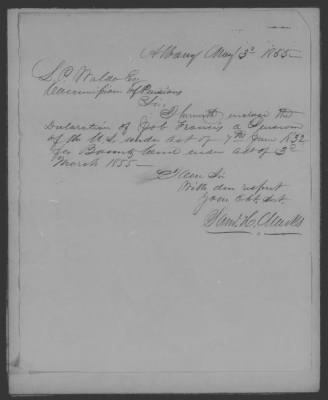 Albany May 3d 1855
L. P. Waldo Esq
Commission of Pensions
Sir,
I herewith enclose the
Declaration of Job Francis a Pensioner
of the U.S. under Act of 7th June 1832
for Bounty Land under act of 3d
March 1855
I am Sir
With due respect
Your Obt Svt
Saml. H.